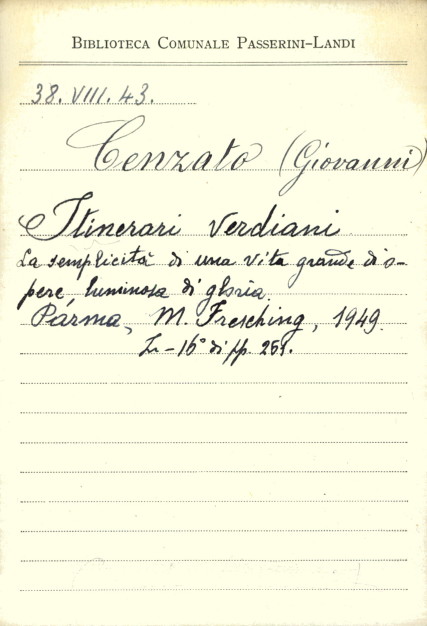 BIBLIOTECA COMUNALE PASSERINI-LANDI
38. VIII. 43.
Cenzato (Giovanni)
Itinerari Verdiani
La semplicità di una vita grande di o-
pere, luminosa di gloria.
Parma, M. Fresching, 1949.
In-16° di pp. 251.